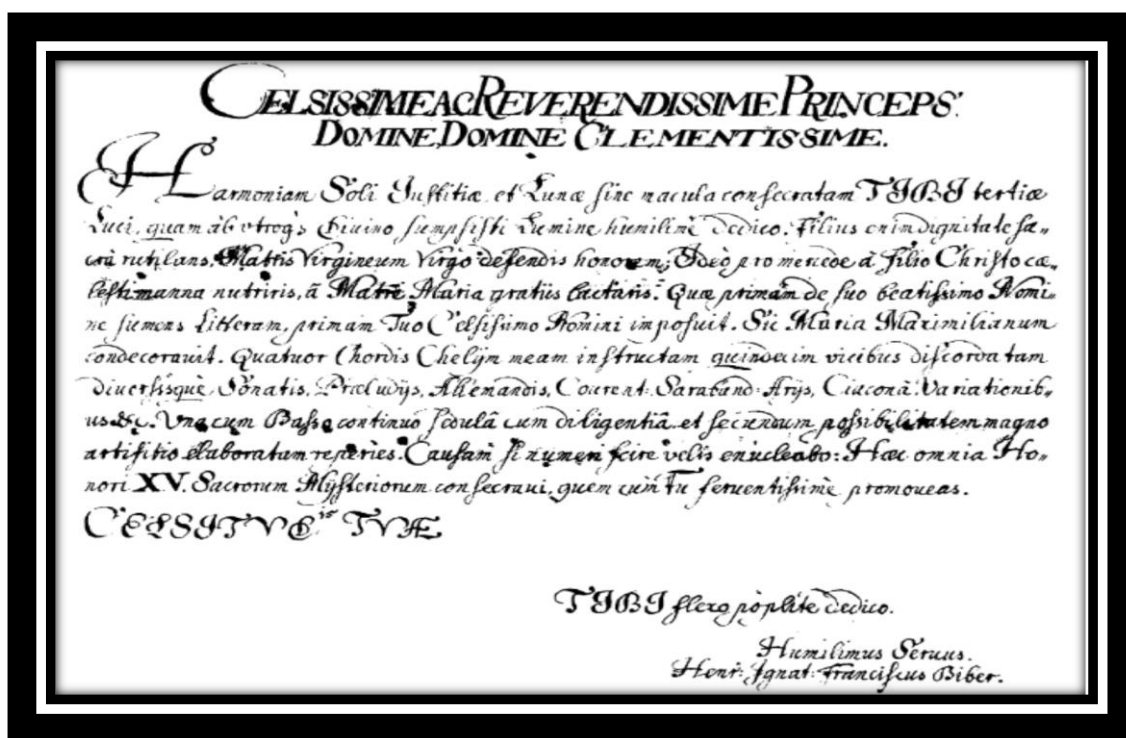 CELSISSIME AC REVERENDISSIME PRINCEPS.
DOMINE, DOMINE CLEMENTISSIME.
Harmoniam Soli Justitiæ, et Lunæ sine macula consecratam TIBI tertiæ
Luci, quam ab vtroqȝ Diuino sumpsisti Lumine humilimè dedico. Filius enim dignitate sa-
crâ rutilans, Matris Virgineum Virgo defendis honorem; Ideò pro mercede â Filio Christo cæ-
lesti manna nutriris, â Matre Maria gratiis lactaris. Quæ primam de suo beatissimo Nomi-
ne siemens Litteram, primam Tuo Celsissimo Nomini imposuit. Sic Maria Maximilianum
condecorauit. Quatuor Chordis Chelÿm meam instructam quindecim vicibus discordatam
diuersisque, Sonatis, Præludijs, Allemandis, Courent: Saraband: Arijs, Ciaconâ, Variationib-
us &c. Vna cum Basso continuo sedulâ cum diligentiâ, et secundum possibilitatem magno
artifitio elaboratam reperies. Causam si numeri scire velis enucleabo: Hæc omnia Ho-
nori XV. Sacrorum Mÿsteriorum consecraui, quem cùm Tu feruentissimè promoueas.
CELSITVDis TVÆ
TIBI flexo poplite dedico.
Humilimus Seruus.
Henr: Ignat: Franciscus Biber.